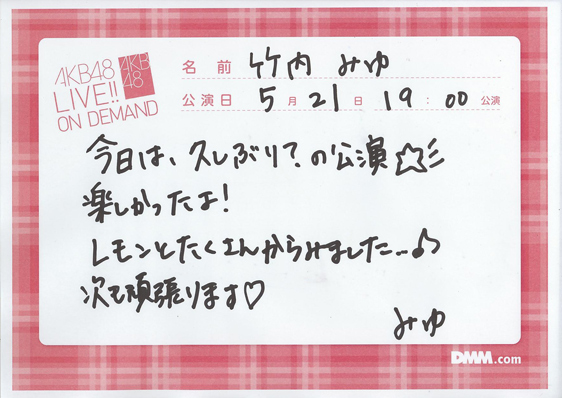 AKB48
LIVE!!
ON DEMAND
AKB
48
名前 竹内 みゆ
公演日 5月21日 19:00 公演
今日は、久しぶり?の公演☆彡
楽しかったよ!
レモンとたくさんからみました…♪
次も頑張ります♡
みゆ
DMM.com